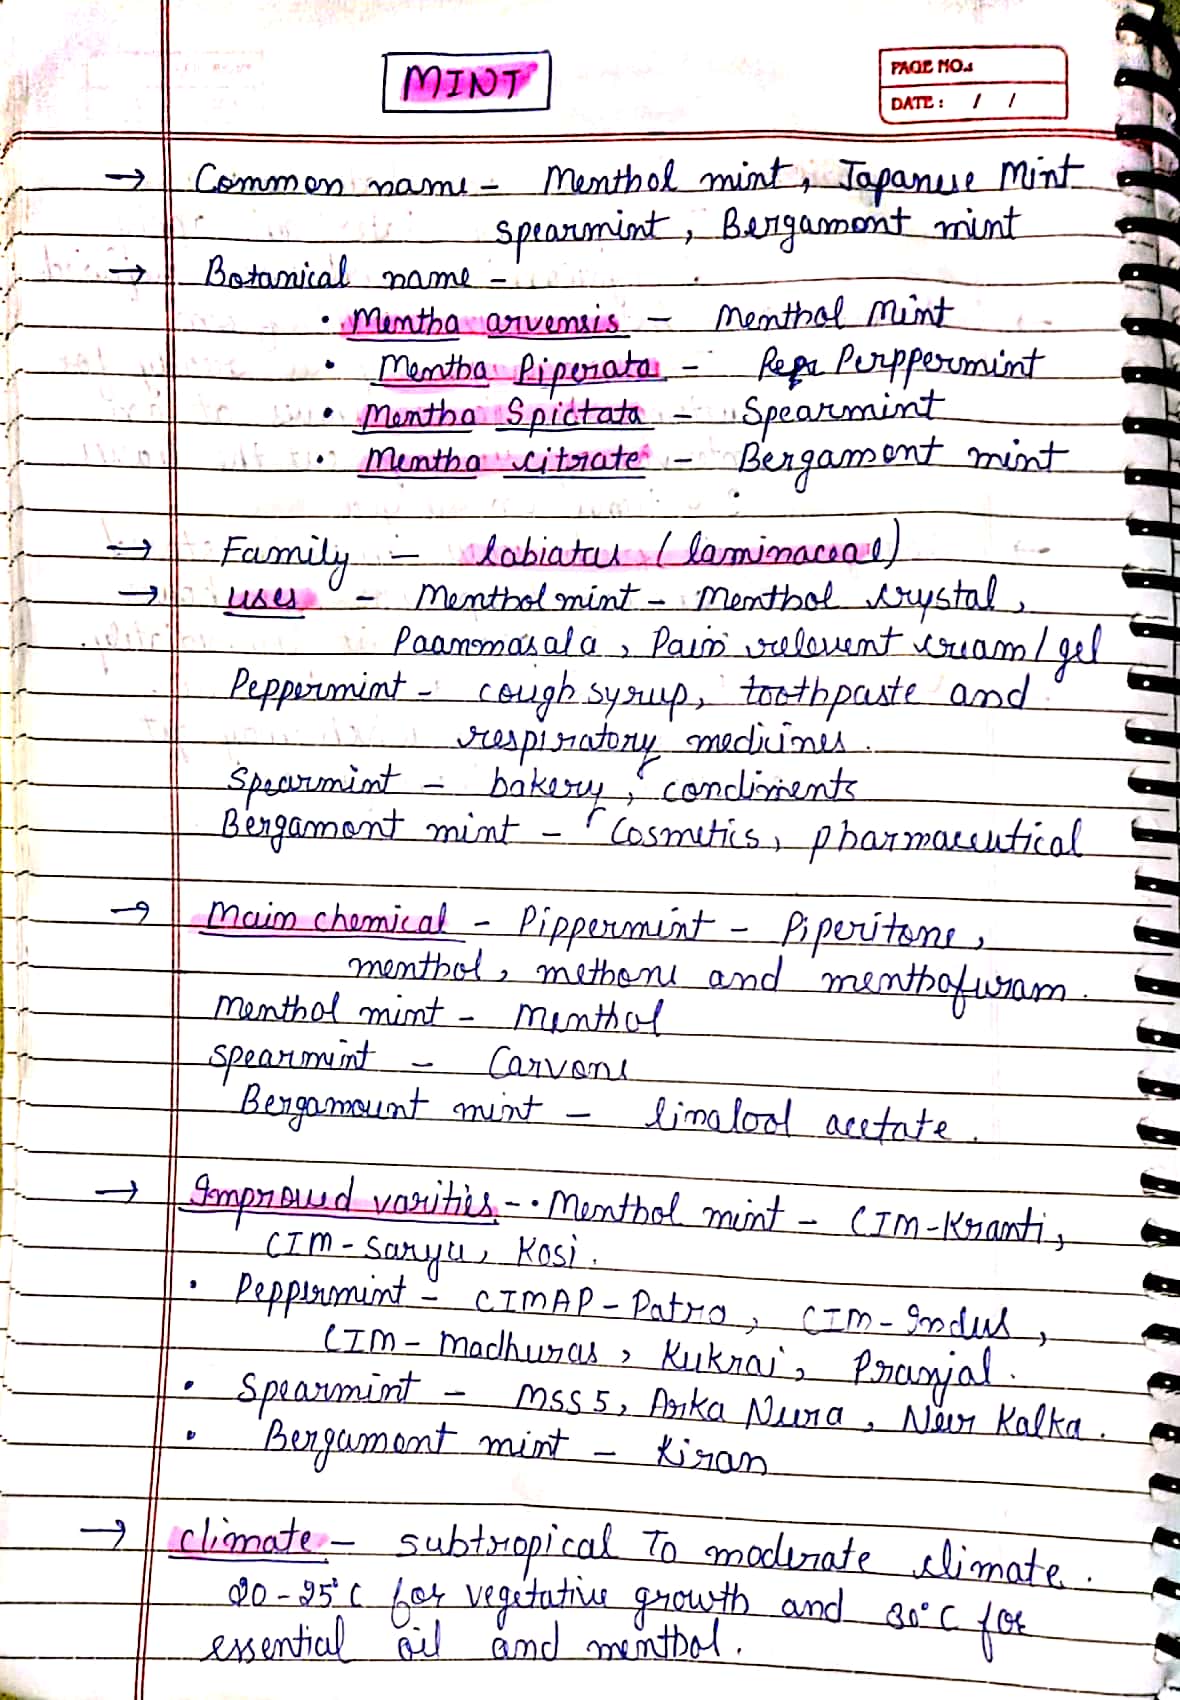 MINT
PAGE NO.:
DATE: / /
→ Common name - Menthol mint, Japanese Mint
Spearmint, Bergamont mint
→ Botanical name -
• Mentha arvensis - Menthol Mint
• Mentha Piperata - Perppermint
• Mentha Spictata - Spearmint
• Mentha citrate - Bergamont mint
→ Family - Labiatus (laminaceae)
→ uses - Menthol mint - Menthol crystal,
Paanmasala, Pain relevent cream/gel
Peppermint - cough syrup, toothpaste and
respiratory medicines.
Spearmint - bakery, condiments
Bergamont mint - Cosmetics, pharmaceutical
→ Main chemical - Pippermint - Piperitone,
menthol, methone and menthofuram.
Menthol mint - Menthol
Spearmint - Carvone
Bergamount mint - linalool acetate.
→ Improved varities - • Menthol mint - CIM-Kranti,
CIM-Saryu, Kosi.
• Peppermint - CIMAP-Patra, CIM-Indus,
CIM-Madhuras, Kukrai, Pranjal.
• Spearmint - MSS5, Arka Neera, Neer Kalka.
• Bergamont mint - Kiran
→ Climate - subtropical To moderate climate.
20-25°C for vegetative growth and 30°C for
essential oil and menthol.